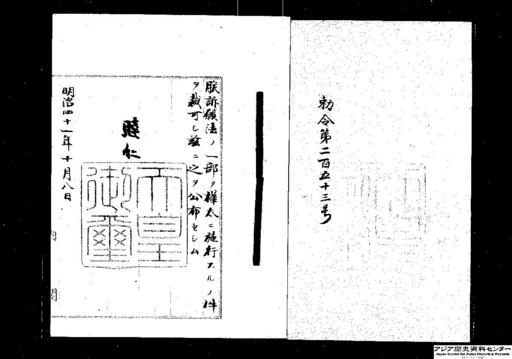 勅令第二百五十三号
朕訴願法ノ一部ヲ樺太ニ施行スルノ件
ヲ裁可シ茲ニ之ヲ公布セシム
睦仁
天皇御璽
明治四十一年十月八日
内閣
アジア歴史資料センター
Japan Center for Asian Historical Records